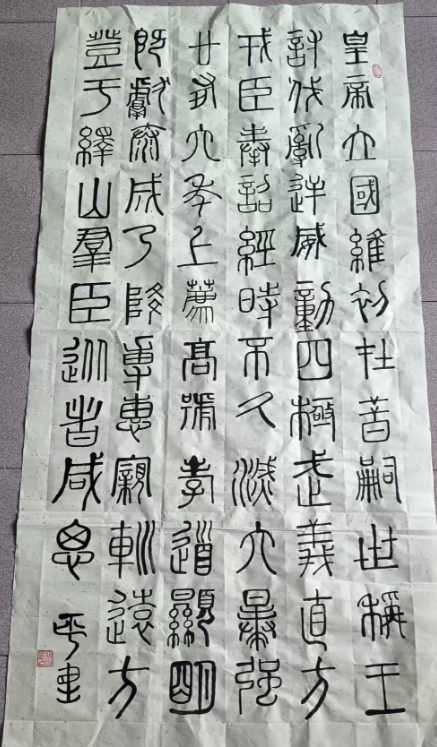 皇帝立國維初在昔嗣世稱王
討伐亂逆威動四極武義直方
戎臣奉詔經時不久滅六暴強
廿有六年上薦高號孝道顯明
既獻泰成乃降專惠親巡遠方
登于繹山羣臣從者咸思